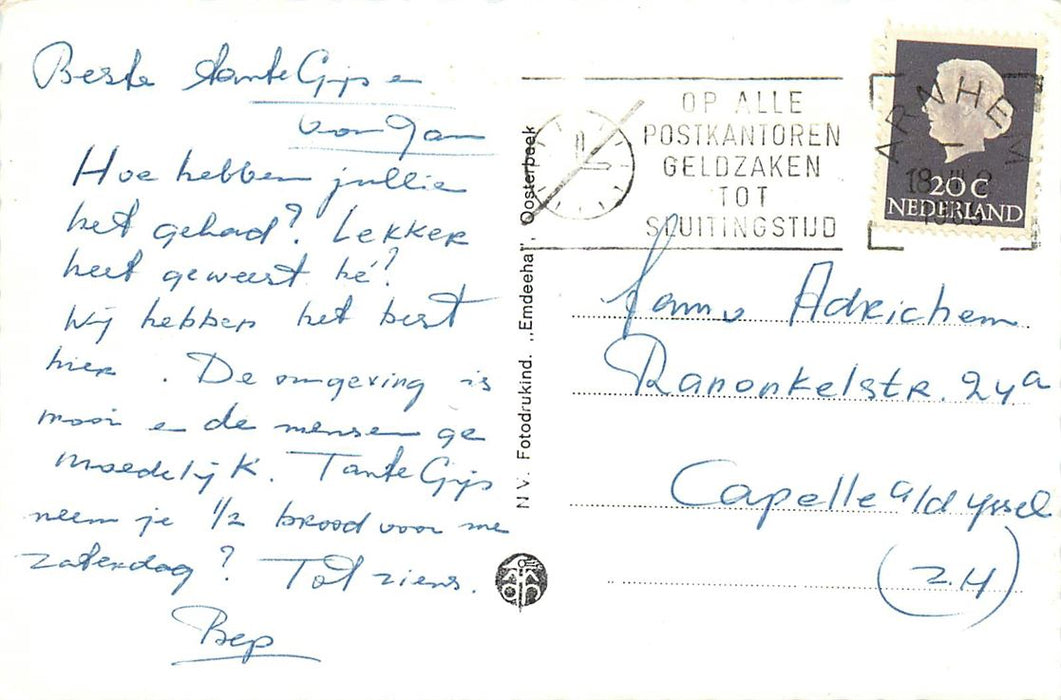 Beste Tante Gijs en
Oom Jan
Hoe hebben jullie
het gehad? Lekker
heet geweest hé?
Wij hebben het best
hier. De omgeving is
mooi en de mensen ge
moedelijk. Tante Gijs
neem je 1/2 brood voor me
zaterdag? Tot ziens.
Bep
N.V. Fotodrukind. „Emdeeha", Oosterbeek
OP ALLE
POSTKANTOREN
GELDZAKEN
TOT
SLUITINGSTIJD
ARNHEM
18
20 C
NEDERLAND
Fam. v Adrichem
Ranonkelstr. 24a
Capelle a/d yssel
(Z.H)